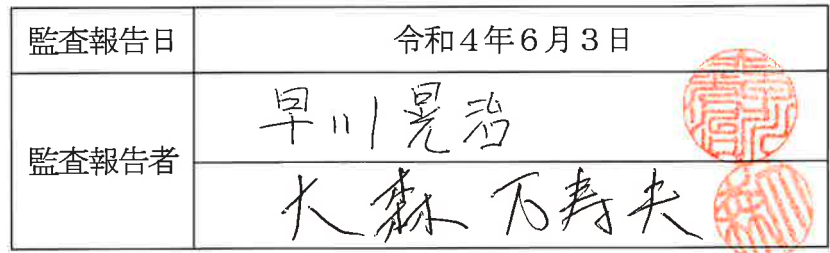 監査報告日
令和4年6月3日
監査報告者
早川晃治
大森万寿夫